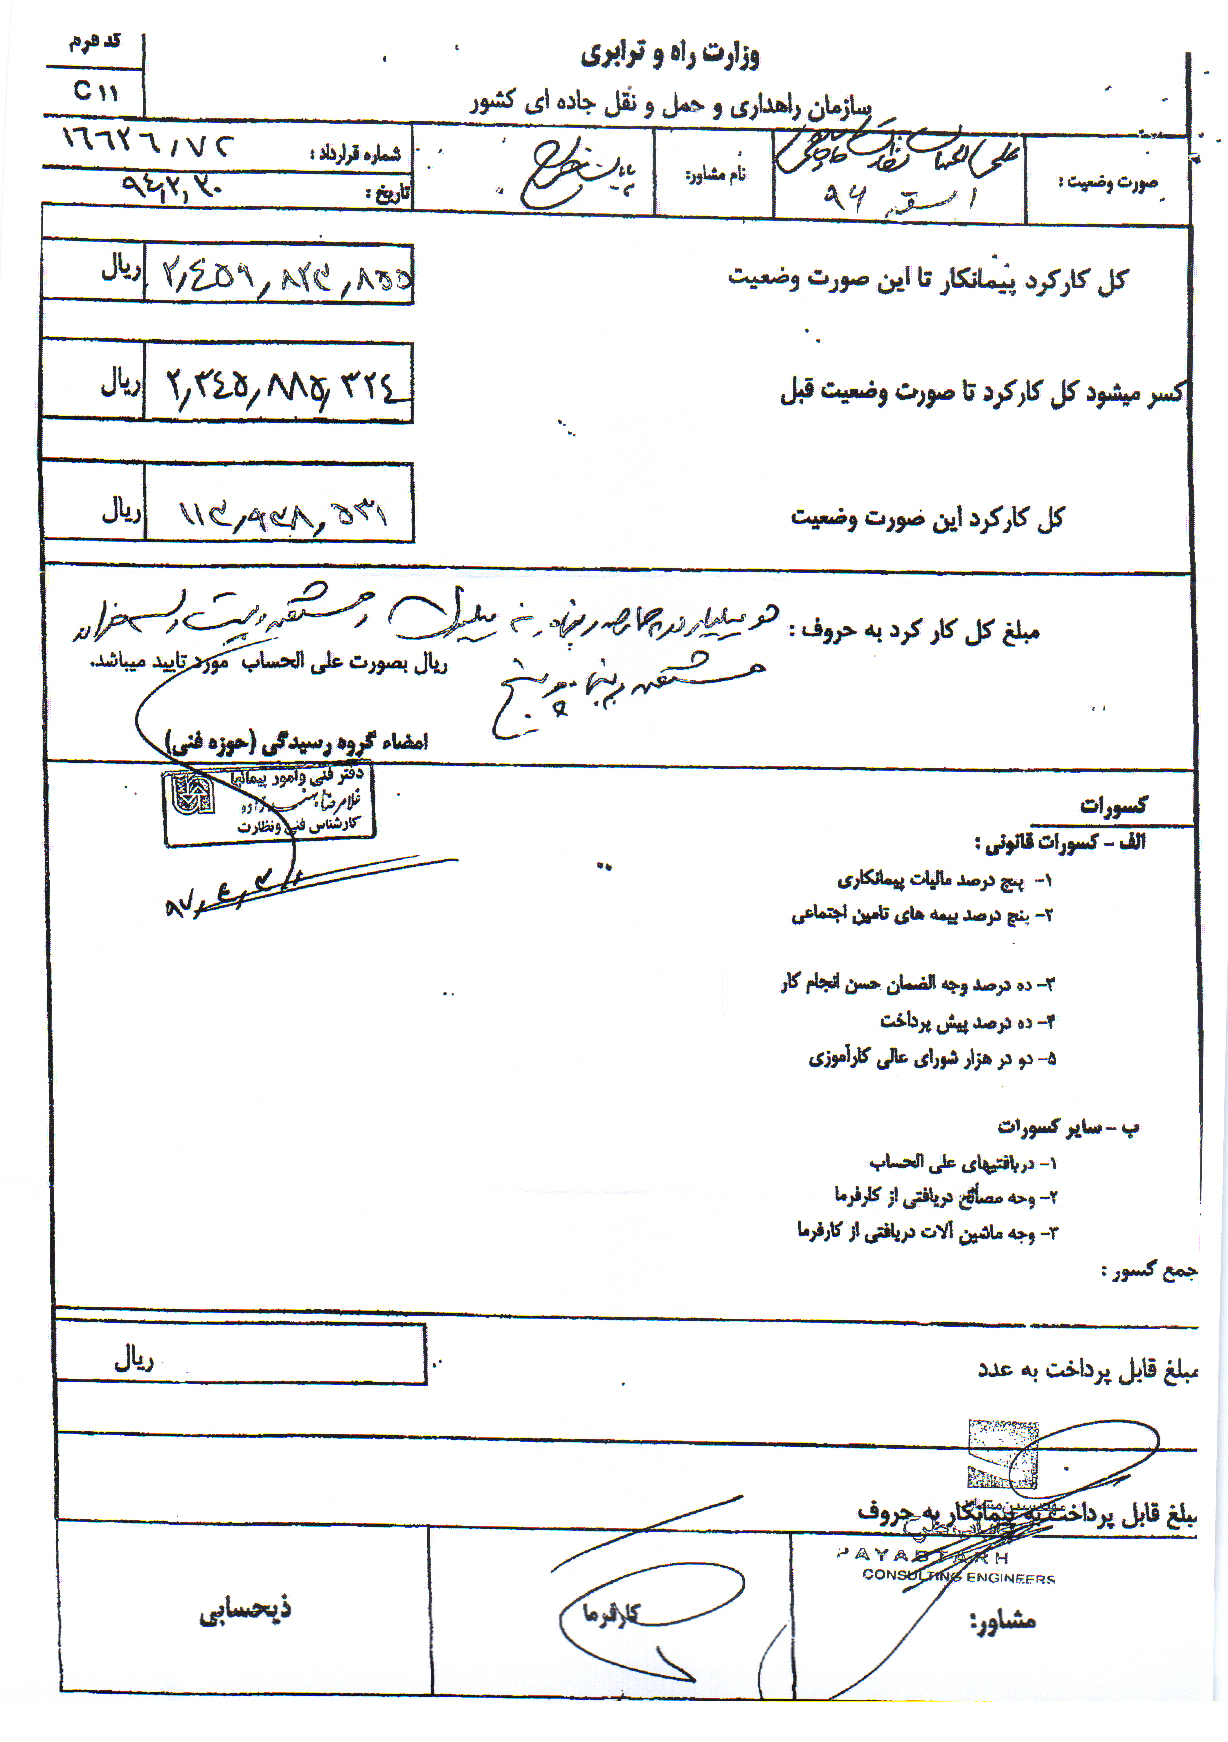 کد فرم
C۱۱
وزارت راه و ترابری
سازمان راهداری و حمل و نقل جاده ای کشور
صورت وضعیت :
علی الحساب نظارت
اسفند ۹۴
نام مشاور:
پایاب طرح
شماره قرارداد :
۱۶۶۲۶/۷۲
تاریخ :
۹۴,۲,۳۰
کل کارکرد پیمانکار تا این صورت وضعیت
۲,۴۵۹,۸۲۳,۸۵۵
ریال
کسر میشود کل کارکرد تا صورت وضعیت قبل
۲,۳۴۵,۸۸۵,۳۲۴
ریال
کل کارکرد این صورت وضعیت
۱۱۳,۹۳۸,۵۳۱
ریال
مبلغ کل کار کرد به حروف : دو میلیارد و چهارصد و پنجاه و نه میلیون و هشتصد و بیست و سه هزار و
هشتصد و پنجاه و پنج ریال بصورت علی الحساب مورد تایید میباشد.
امضاء گروه رسیدگی (حوزه فنی)
دفتر فنی و امور پیمانها
غلامرضا
کارشناس فنی و نظارت
کسورات
الف - کسورات قانونی :
۱- پنج درصد مالیات پیمانکاری
۲- پنج درصد بیمه های تامین اجتماعی
۳- ده درصد وجه الضمان حسن انجام کار
۴- ده درصد پیش پرداخت
۵- دو در هزار شورای عالی کارآموزی
ب - سایر کسورات
۱- دریافتیهای علی الحساب
۲- وجه مصالح دریافتی از کارفرما
۳- وجه ماشین آلات دریافتی از کارفرما
جمع کسور :
مبلغ قابل پرداخت به عدد
ریال
مبلغ قابل پرداخت به پیمانکار به حروف
PAYABTARH
CONSULTING ENGINEERS
مشاور:
کارفرما
ذیحسابی